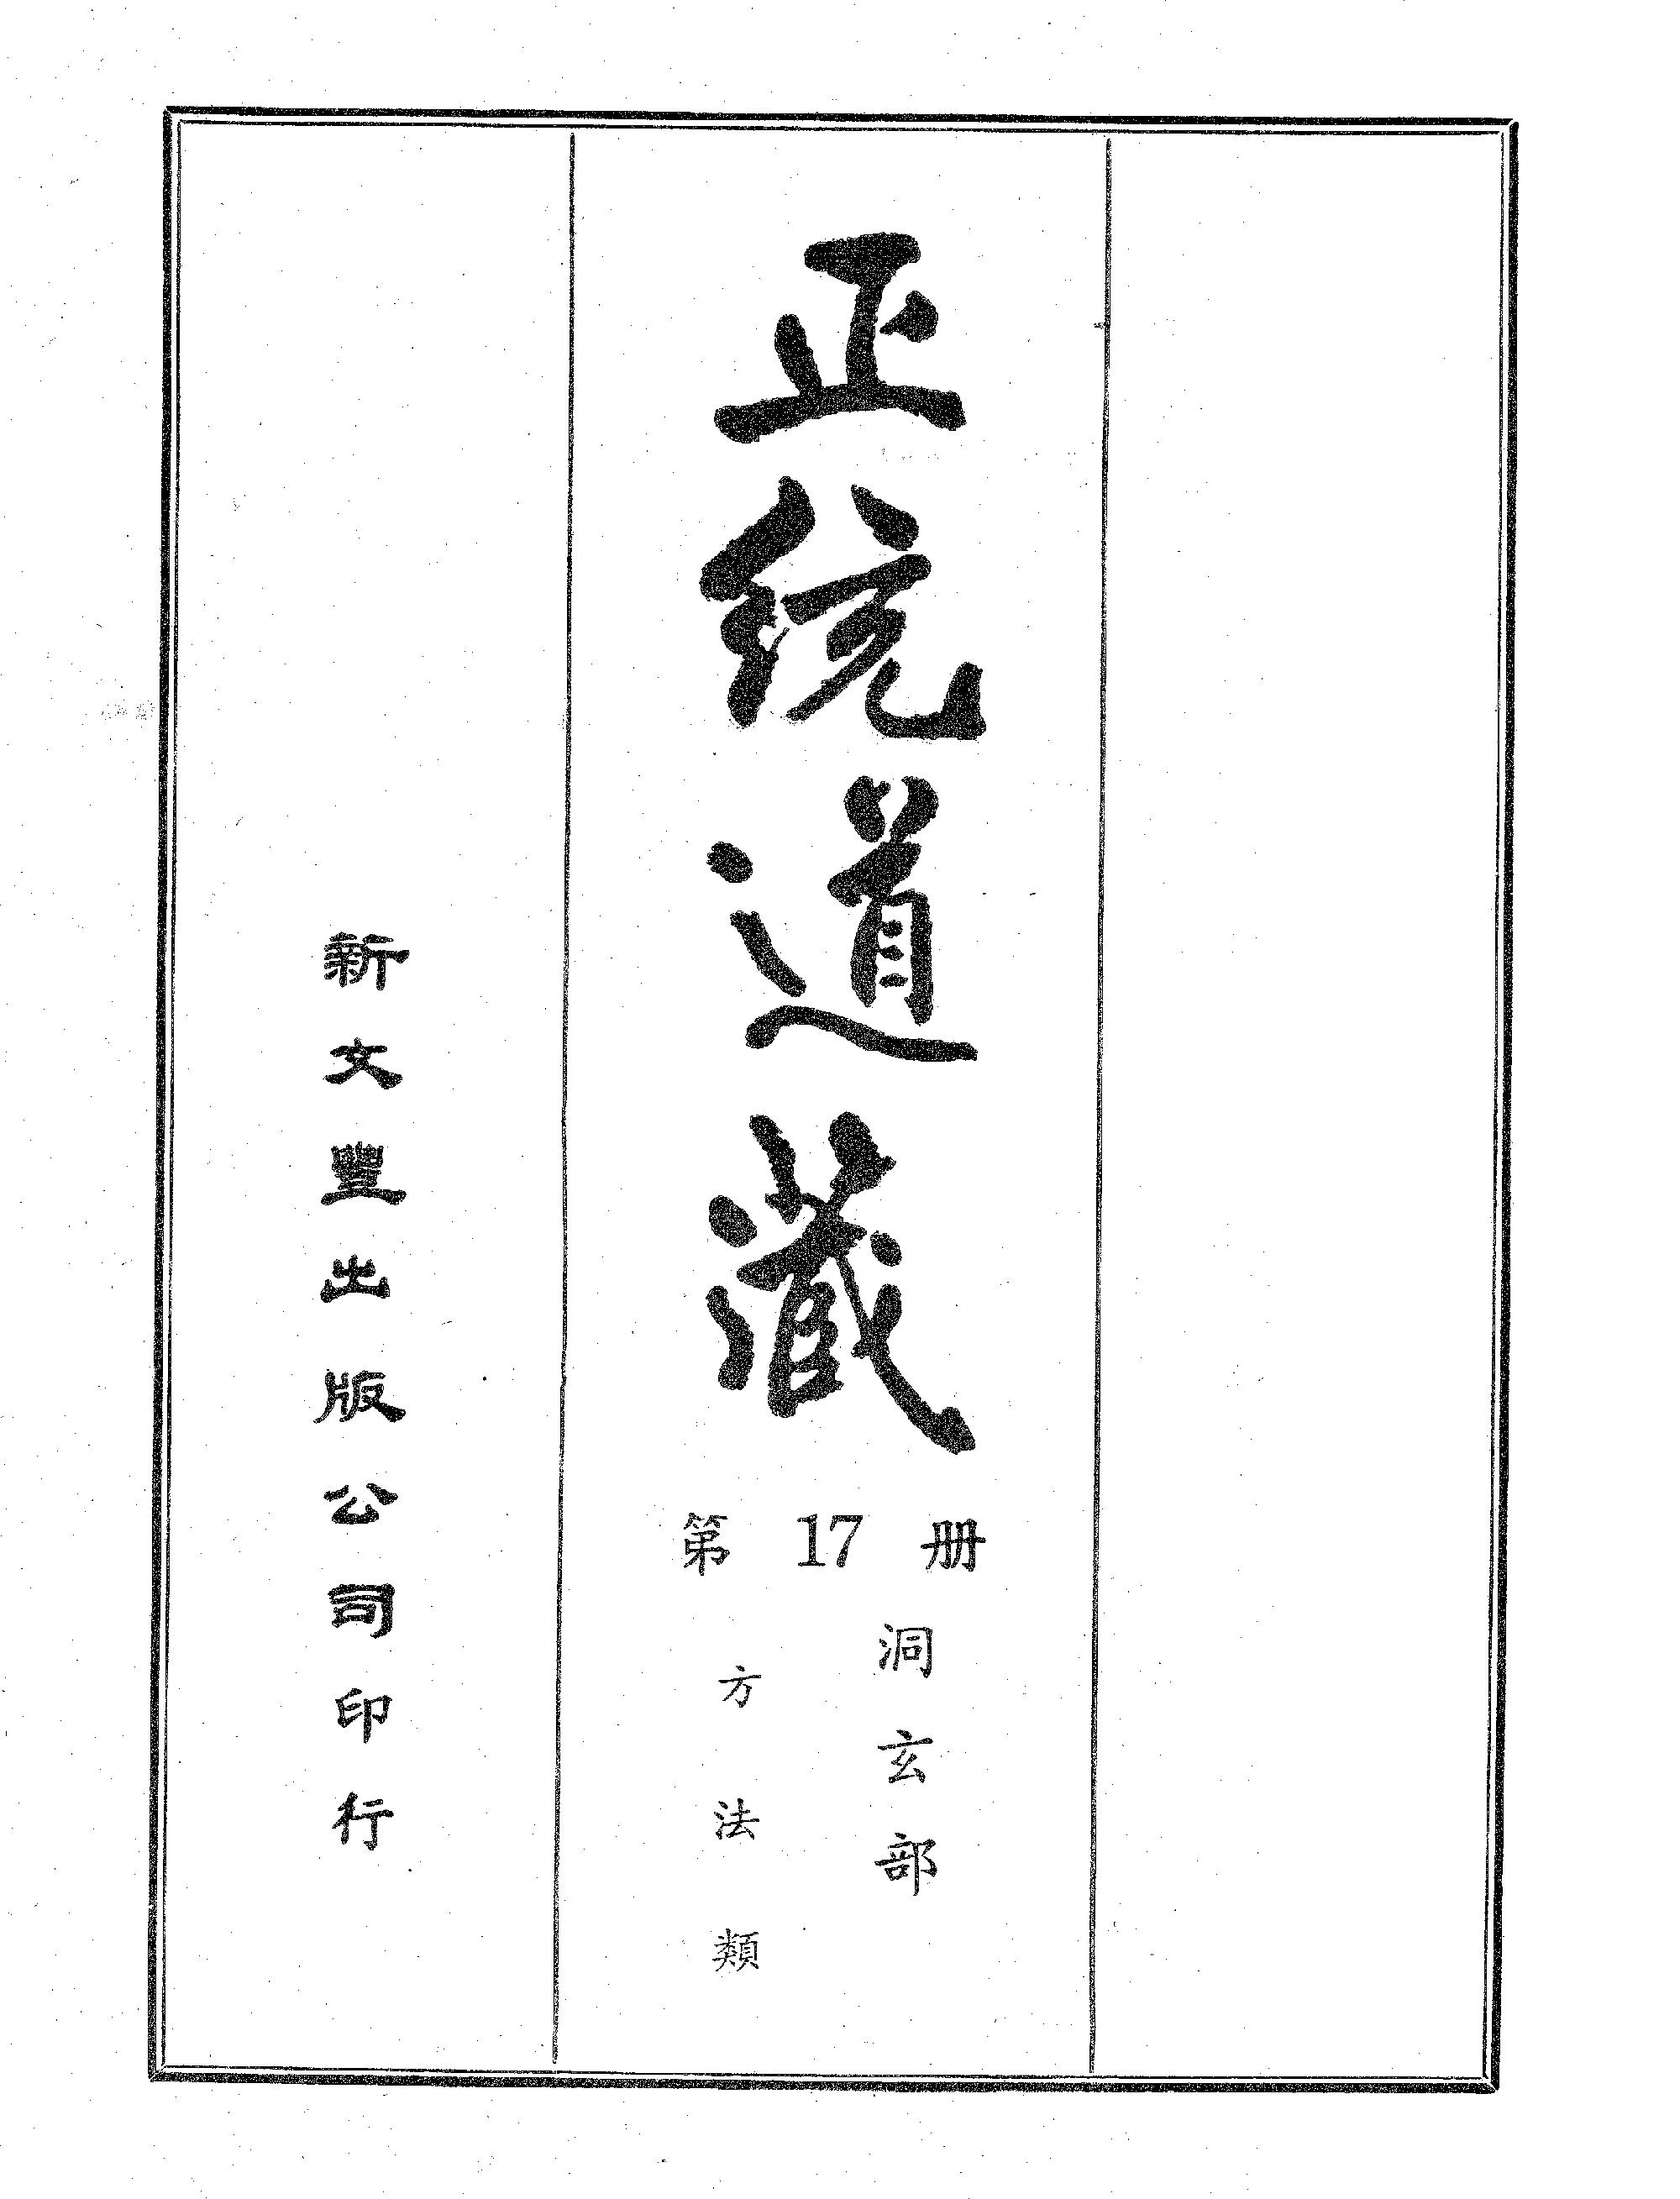 正統道藏
第17册
洞玄部
方法類
新文豐出版公司印行